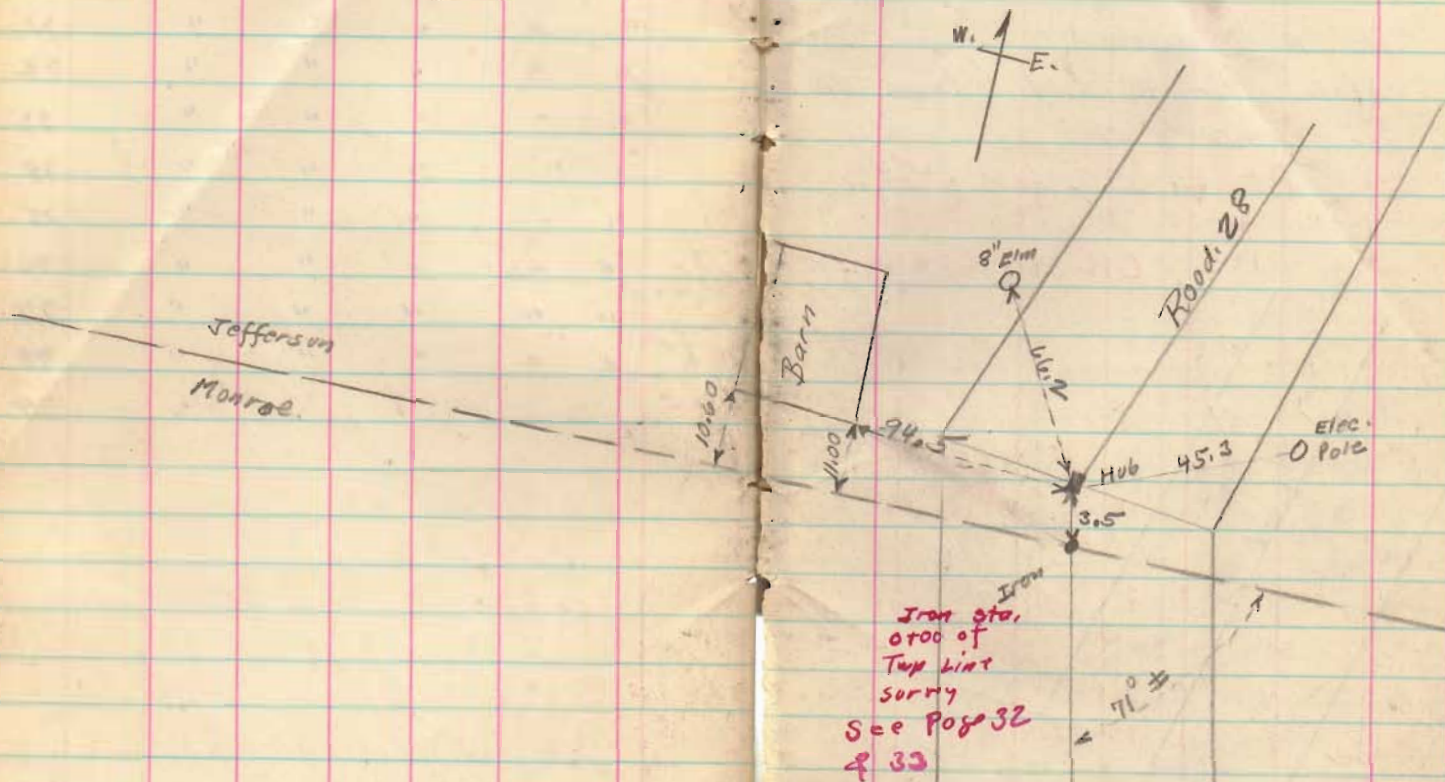 W.
E.
8" Elm
Road. 28
Jefferson
Monroe.
Barn
66.2
10.60
11.00
94.5
Hub
45.3
Elec.
Pole
3.5
Iron
Iron sta.
0+00 of
Twp Line
surry
See Page 32
& 33
71° ±